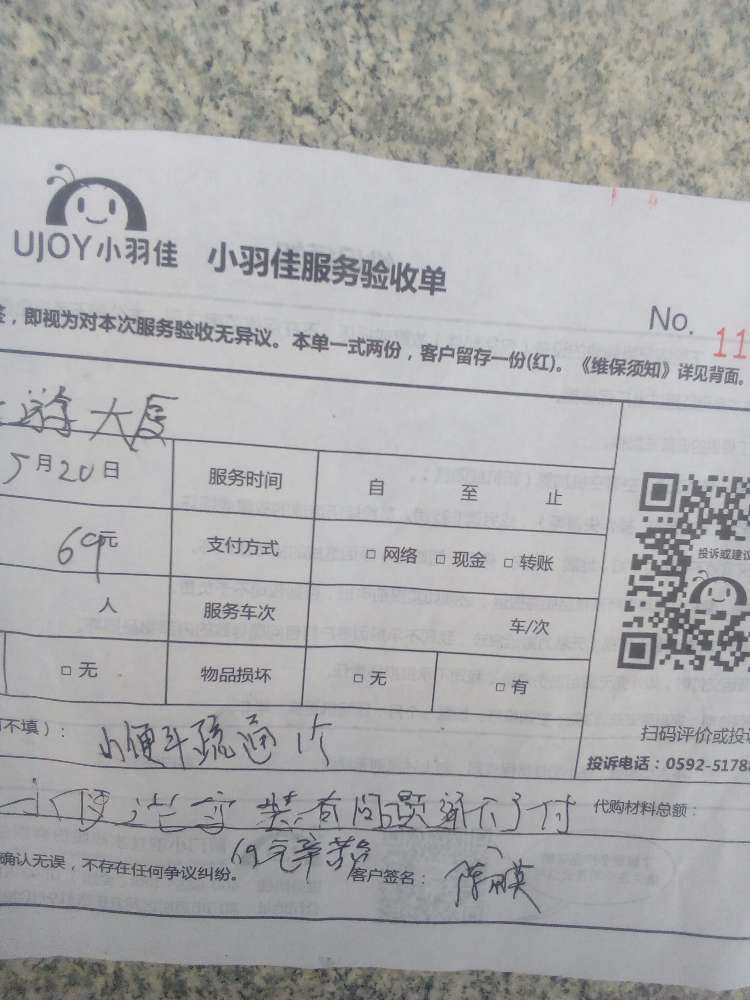 UJOY小羽佳 小羽佳服务验收单
No. 11
，即视为对本次服务验收无异议。本单一式两份，客户留存一份(红)。《维保须知》详见背面。
大厦
5月20日 服务时间 自 至 止
69元 支付方式 □ 网络 □ 现金 □ 转账
人 服务车次 车/次
□ 无 物品损坏 □ 无 □ 有
投诉或建议
扫码评价或投诉
不填）： 小便斗疏通
投诉电话：0592-5178
装有问题 代购材料总额：
确认无误，不存在任何争议纠纷。 客户签名： 陈